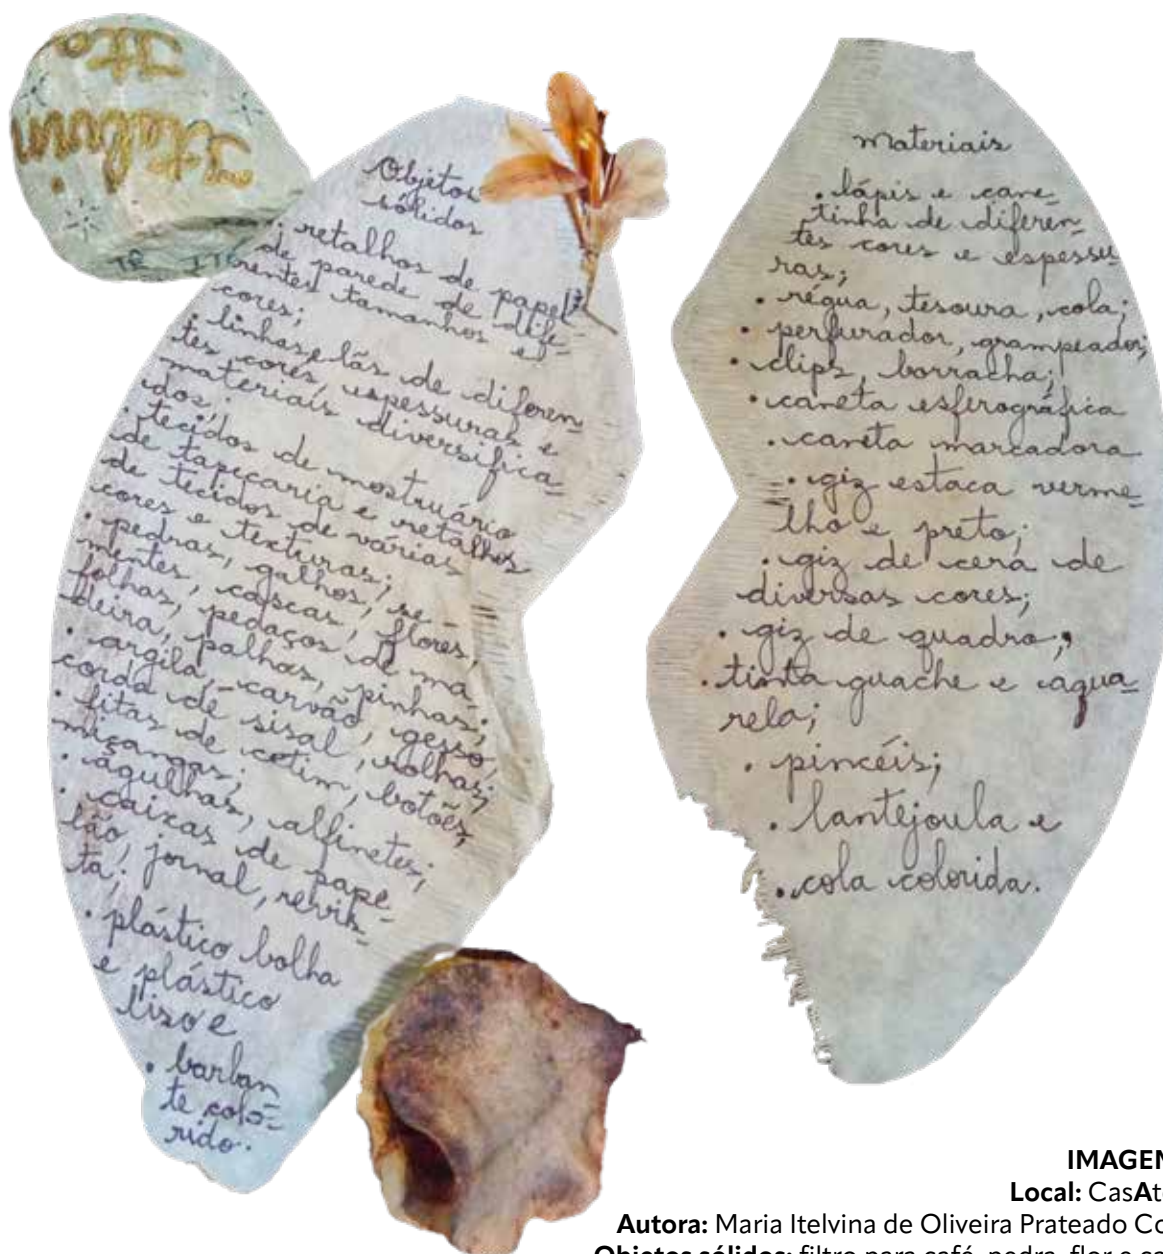 Ita
Italvin
TE ITE
Objetos
sólidos
. retalhos de papel
de parede de dife-
rentes tamanhos e
cores;
. linhas e lãs de diferen-
tes cores, espessuras e
materiais diversifica-
dos;
. tecidos de mostruário
de tapeçaria e retalhos
de tecidos de várias
cores e texturas;
. pedras, galhos, se-
mentes, cascas, flores,
folhas, pedaços de ma-
deira, palhas, pinhas;
. argila, carvão, gesso,
corda de sisal, rolhas;
. fitas de cetim, botões,
miçangas;
. agulhas, alfinetes;
. caixas de pape-
lão, jornal, revis-
ta;
. plástico bolha
e plástico
liso e
. barban
te colo-
rido.
materiais
. lápis e cane-
tinha de diferen-
tes cores e espessu-
ras;
. régua, tesoura, cola;
. perfurador, grampeador;
. clips, borracha;
. caneta esferográfica
. caneta marcadora
. giz estaca verme-
lho e preto;
. giz de cera de
diversas cores;
. giz de quadro;
. tinta guache e aqua-
rela;
. pincéis;
. lantejoula e
. cola colorida.
IMAGEN
Local: CasAt
Autora: Maria Itelvina de Oliveira Prateado Co
Objetos sólidos: filtro para café, pedra, flor e